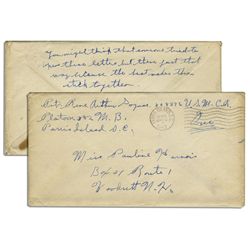 You might think that someone tried to
open these letters, but these just that
way because the heat makes them
stick together.
Pvt. Rene Arthur Gagnon U.S.M.C.R.
Platoon B.
Parris Island S.C.
Free
Miss Pauline Harnois
Box 21 Route 1
N.H.